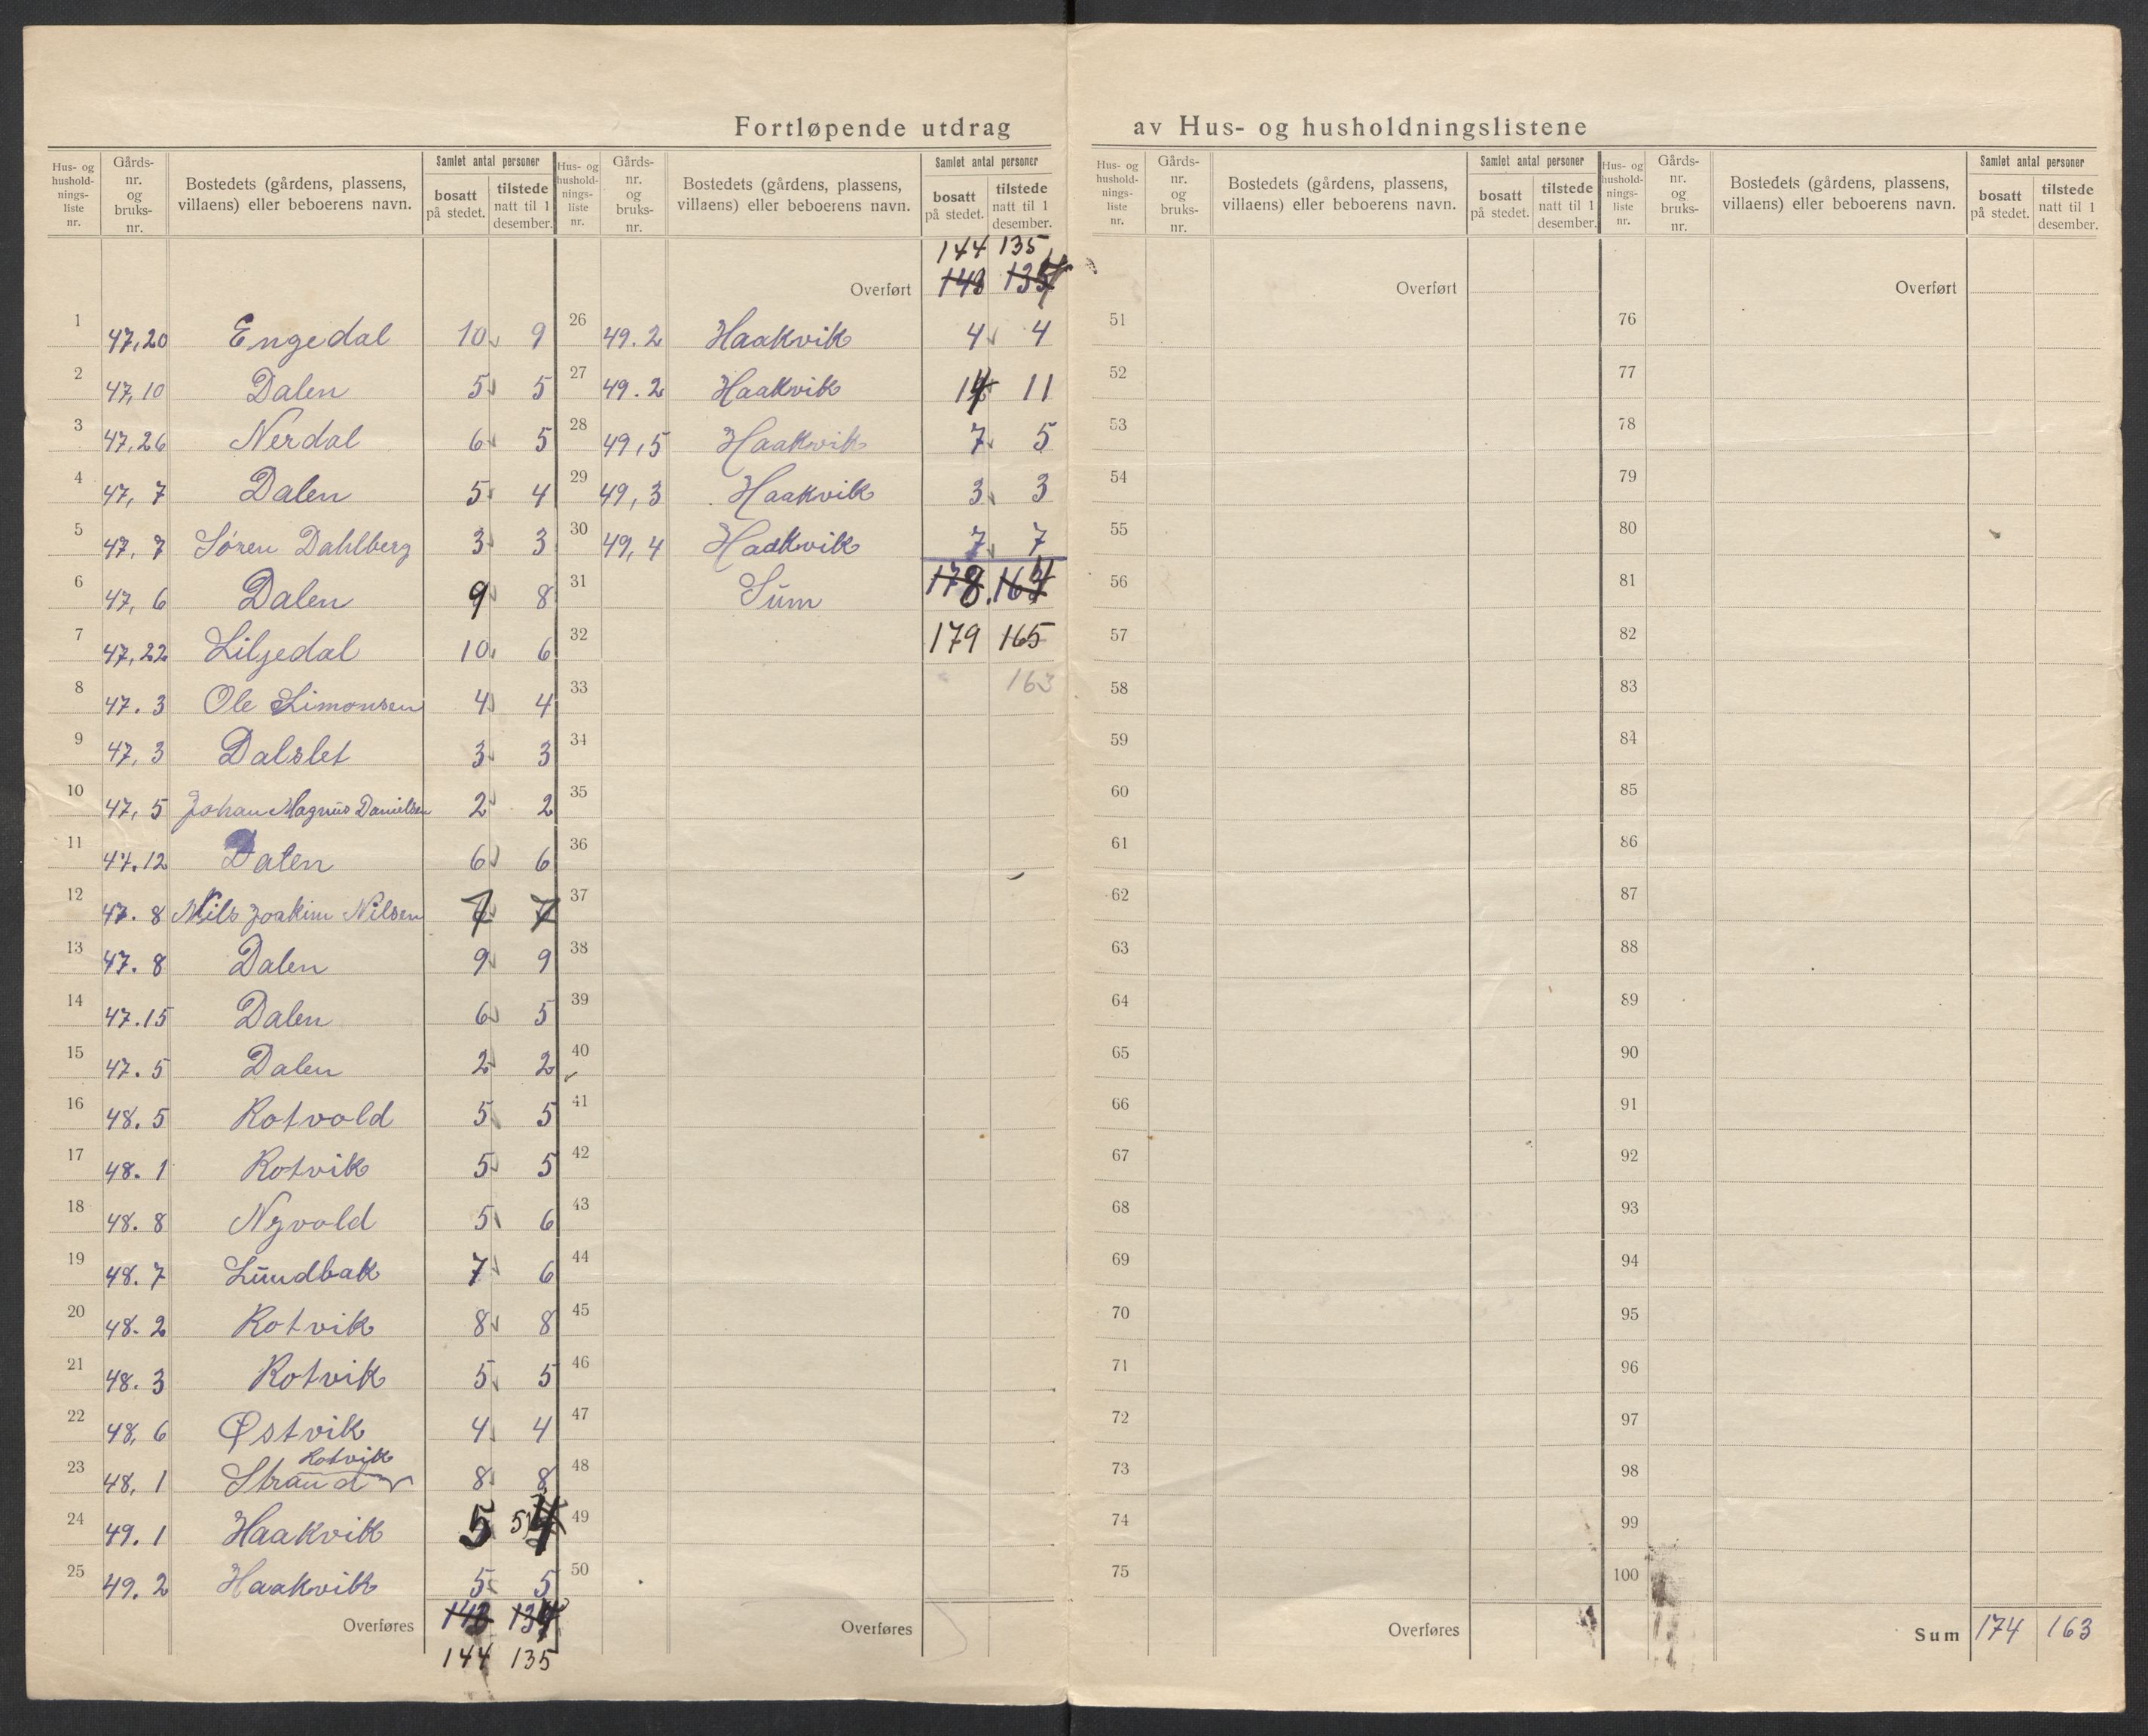 Fortløpende utdrag av Hus- og husholdningslistene
Hus- og hushold- nings- liste nr. Gårds- nr. og bruks- nr. Bostedets (gårdens, plassens, villaens) eller beboerens navn. Samlet antal personer bosatt på stedet. tilstede natt til 1 desember.
1 47,20 Engedal 10 9
2 47,10 Dalen 5 5
3 47,26 Nerdal 6 5
4 47,7 Dalen 5 4
5 47,7 Søren Dahlberg 3 3
6 47,6 Dalen 9 8
7 47,22 Liljedal 10 6
8 47.3 Ole Simonsen 4 4
9 47,3 Dalslet 3 3
10 47,5 Johan Magnus Danielsen 2 2
11 47.12 Dalen 6 6
12 47.8 Nils Joakim Nilsen 7 7
13 47.8 Dalen 9 9
14 47.15 Dalen 6 5
15 47.5 Dalen 2 2
16 48.5 Rotvold 5 5
17 48.1 Rotvik 5 5
18 48.8 Nyvold 5 6
19 48.7 Lundbak 7 6
20 48.2 Rotvik 8 8
21 48.3 Rotvik 5 5
22 48,6 Østvik 4 4
Rotvik
23 48,1 Strand 8 8
24 49.1 Haakvik 5 5
25 49.2 Haakvik 5 5
Overføres 143 134
144 135
Hus- og hushold- nings- liste nr. Gårds- nr. og bruks- nr. Bostedets (gårdens, plassens, villaens) eller beboerens navn. Samlet antal personer bosatt på stedet. tilstede natt til 1 desember.
144 135
Overført 143 134
26 49.2 Haakvik 4 4
27 49.2 Haakvik 14 11
28 49,5 Haakvik 7 5
29 49,3 Haakvik 3 3
30 49,4 Haakvik 7 7
31 Sum 178 164
32 179 165
33 163
34
35
36
37
38
39
40
41
42
43
44
45
46
47
48
49
50
Overføres
Hus- og hushold- nings- liste nr. Gårds- nr. og bruks- nr. Bostedets (gårdens, plassens, villaens) eller beboerens navn. Samlet antal personer bosatt på stedet. tilstede natt til 1 desember.
Overført
51
52
53
54
55
56
57
58
59
60
61
62
63
64
65
66
67
68
69
70
71
72
73
74
75
Overføres
Hus- og hushold- nings- liste nr. Gårds- nr. og bruks- nr. Bostedets (gårdens, plassens, villaens) eller beboerens navn. Samlet antal personer bosatt på stedet. tilstede natt til 1 desember.
Overført
76
77
78
79
80
81
82
83
84
85
86
87
88
89
90
91
92
93
94
95
96
97
98
99
100
Sum 174 163